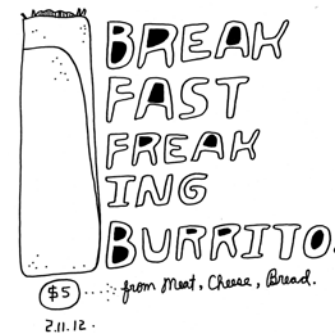 BREAK
FAST
FREAK
ING
BURRITO.
$5 from Meat, Cheese, Bread.
2.11.12.